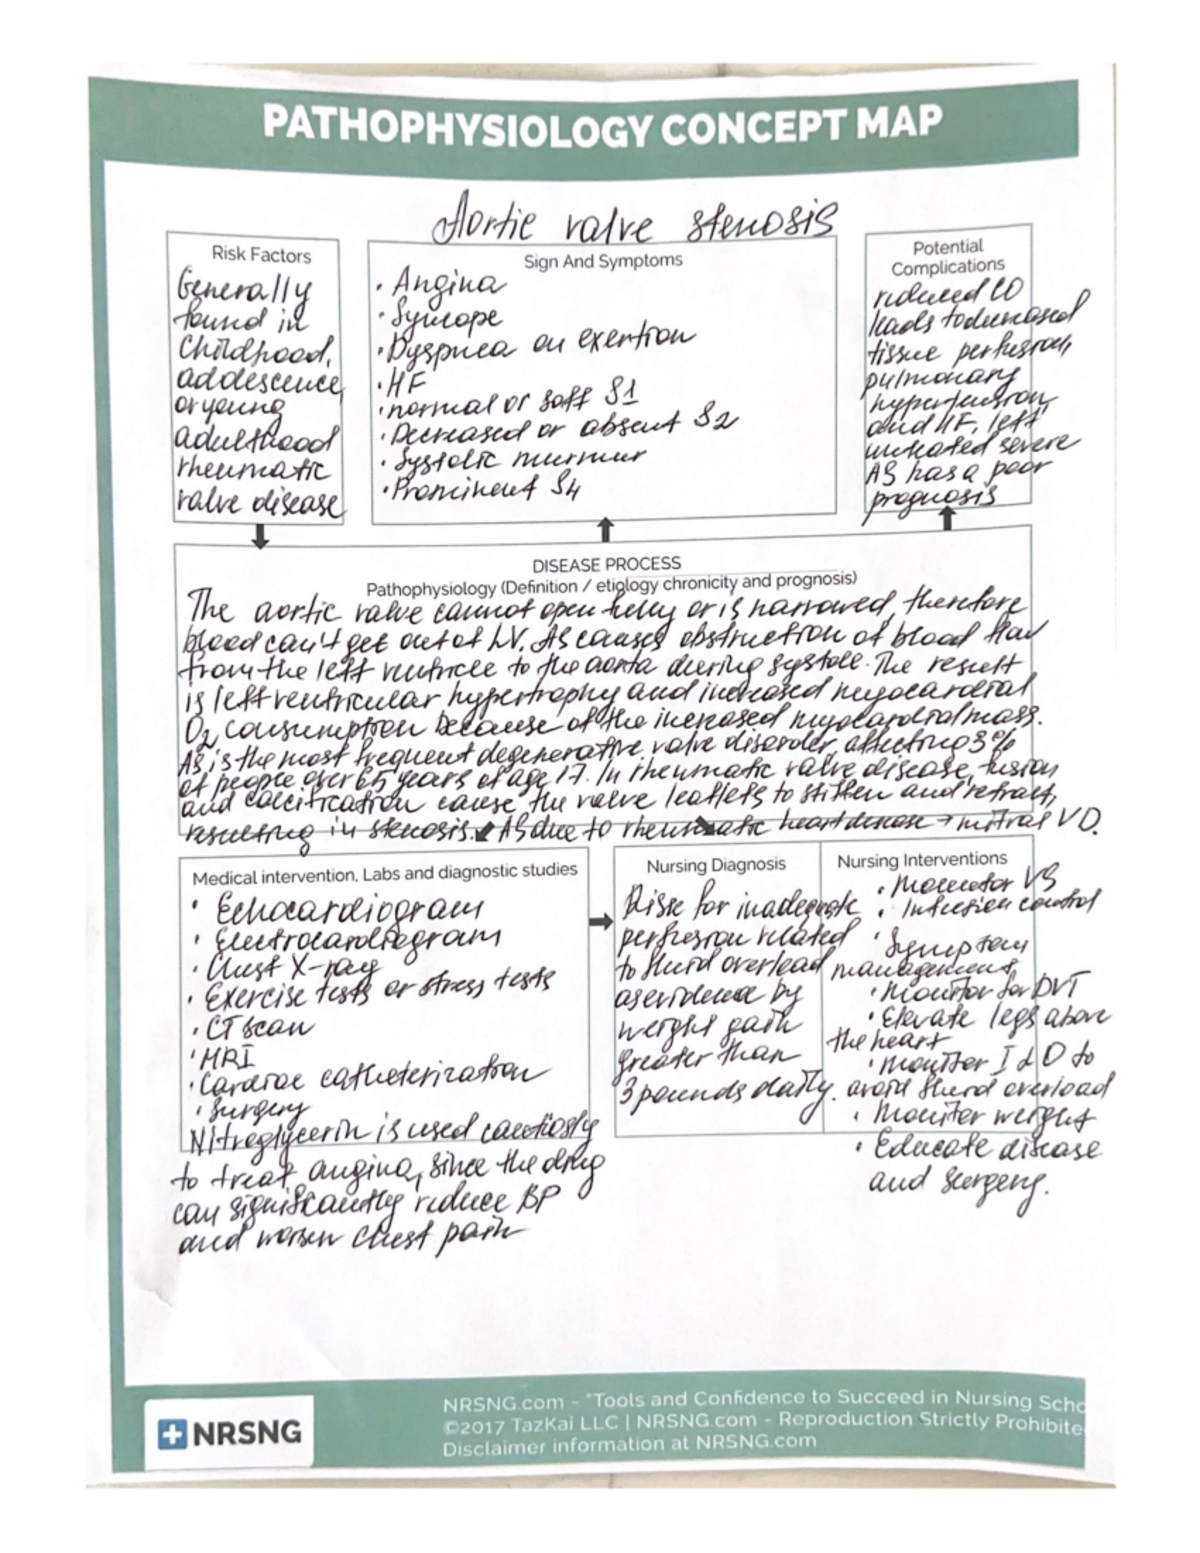 PATHOPHYSIOLOGY CONCEPT MAP
Aortic valve stenosis
Risk Factors
Generally
found in
childhood,
addescence,
or young
adulthood
rheumatic
valve disease
Sign And Symptoms
• Angina
• Syncope
• Dyspnea on exertion
• HF
• normal or soft S1
• Decreased or absent S2
• Systolic murmur
• Prominent S4
Potential
Complications
reduced CO
leads to decreased
tissue perfusion,
pulmonary
hypertension,
and HF, left
untreated severe
AS has a poor
prognosis
DISEASE PROCESS
Pathophysiology (Definition / etiology chronicity and prognosis)
The aortic valve cannot open fully or is narrowed, therefore
blood can't get out of LV. AS causes obstruction of blood flow
from the left ventricle to the aorta during systole. The result
is left ventricular hypertrophy and increased myocardial
O2 consumption because of the increased myocardial mass.
AS is the most frequent degenerative valve disorder, affecting 3%
of people over 65 years of age 17. In rheumatic valve disease, fusion
and calcification cause the valve leaflets to stiffen and retract,
resulting in stenosis. AS due to rheumatic heart disease → mitral VD.
Medical intervention, Labs and diagnostic studies
• Echocardiogram
• Electrocardiogram
• Chest X-ray
• Exercise tests or stress tests
• CT scan
• MRI
• Cardiac catheterization
• Surgery
Nitroglycerin is used cautiosly
to treat angina, since the drug
can significantly reduce BP
and worsen chest pain
Nursing Diagnosis
for inadequate
perfusion related
to fluid overload
as evidence by
weight gain
greater than
3 pounds daily.
Nursing Interventions
• Monitor VS
• Infection control
• Symptom
management
• Monitor for DVT
• Elevate legs above
the heart
• Monitor I & O to
avoid fluid overload
• Monitor weight
• Educate disease
and surgery.
NRSNG
NRSNG.com - "Tools and Confidence to Succeed in Nursing Scho
©2017 TazKai LLC | NRSNG.com - Reproduction Strictly Prohibite
Disclaimer information at NRSNG.com